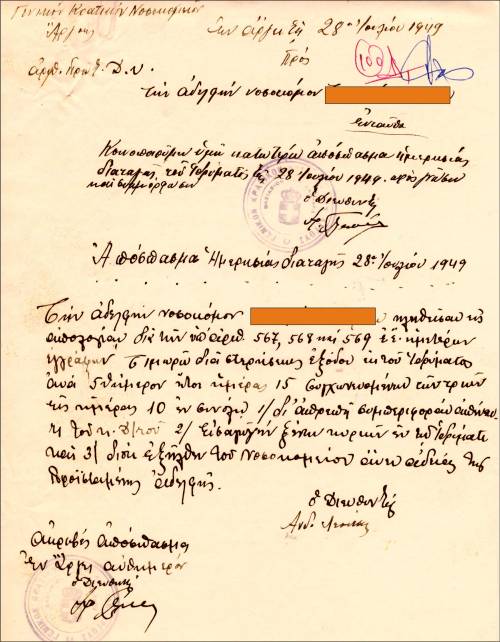 Γενικόν Κρατικόν Νοσοκομείον
Άργους
Εν Άργει τη 28η Ιουλίου 1949
Αριθ. Πρωτ. Δ.υ.
Προς
100
Την αδελφήν νοσοκόμον
Ενταύθα
Κοινοποιούμεν υμίν κατωτέρω απόσπασμα ημερησίας
διαταγής του Ιδρύματος της 28 Ιουλίου 1949 προς γνώσιν
και συμμόρφωσιν
ο Διευθυντής
Απόσπασμα Ημερησίας διαταγής 28ης Ιουλίου 1949
Την αδελφήν νοσοκόμον κληθείσαν εις
απολογίαν διά των υπ' αριθ. 567, 568 και 569 ε.έ. ημετέρων
εγγράφων τιμωρώ διά στερήσεως εξόδου εκ του Ιδρύματος
ανά 5νθήμερον ήτοι ημέρας 15 συγχωνευομένων των τριών
εις ημέρας 10 εν συνόλω 1/ δι' απρεπή συμπεριφοράν
2/ Εισαγωγήν ξένων εν τω Ιδρύματι
και 3/ διότι εξήλθεν του Νοσοκομείου άνευ αδείας της
Προϊσταμένης αδελφής.
ο Διευθυντής
ακριβές απόσπασμα
Εν Άργει αυθημερόν
ο Διευθυντής